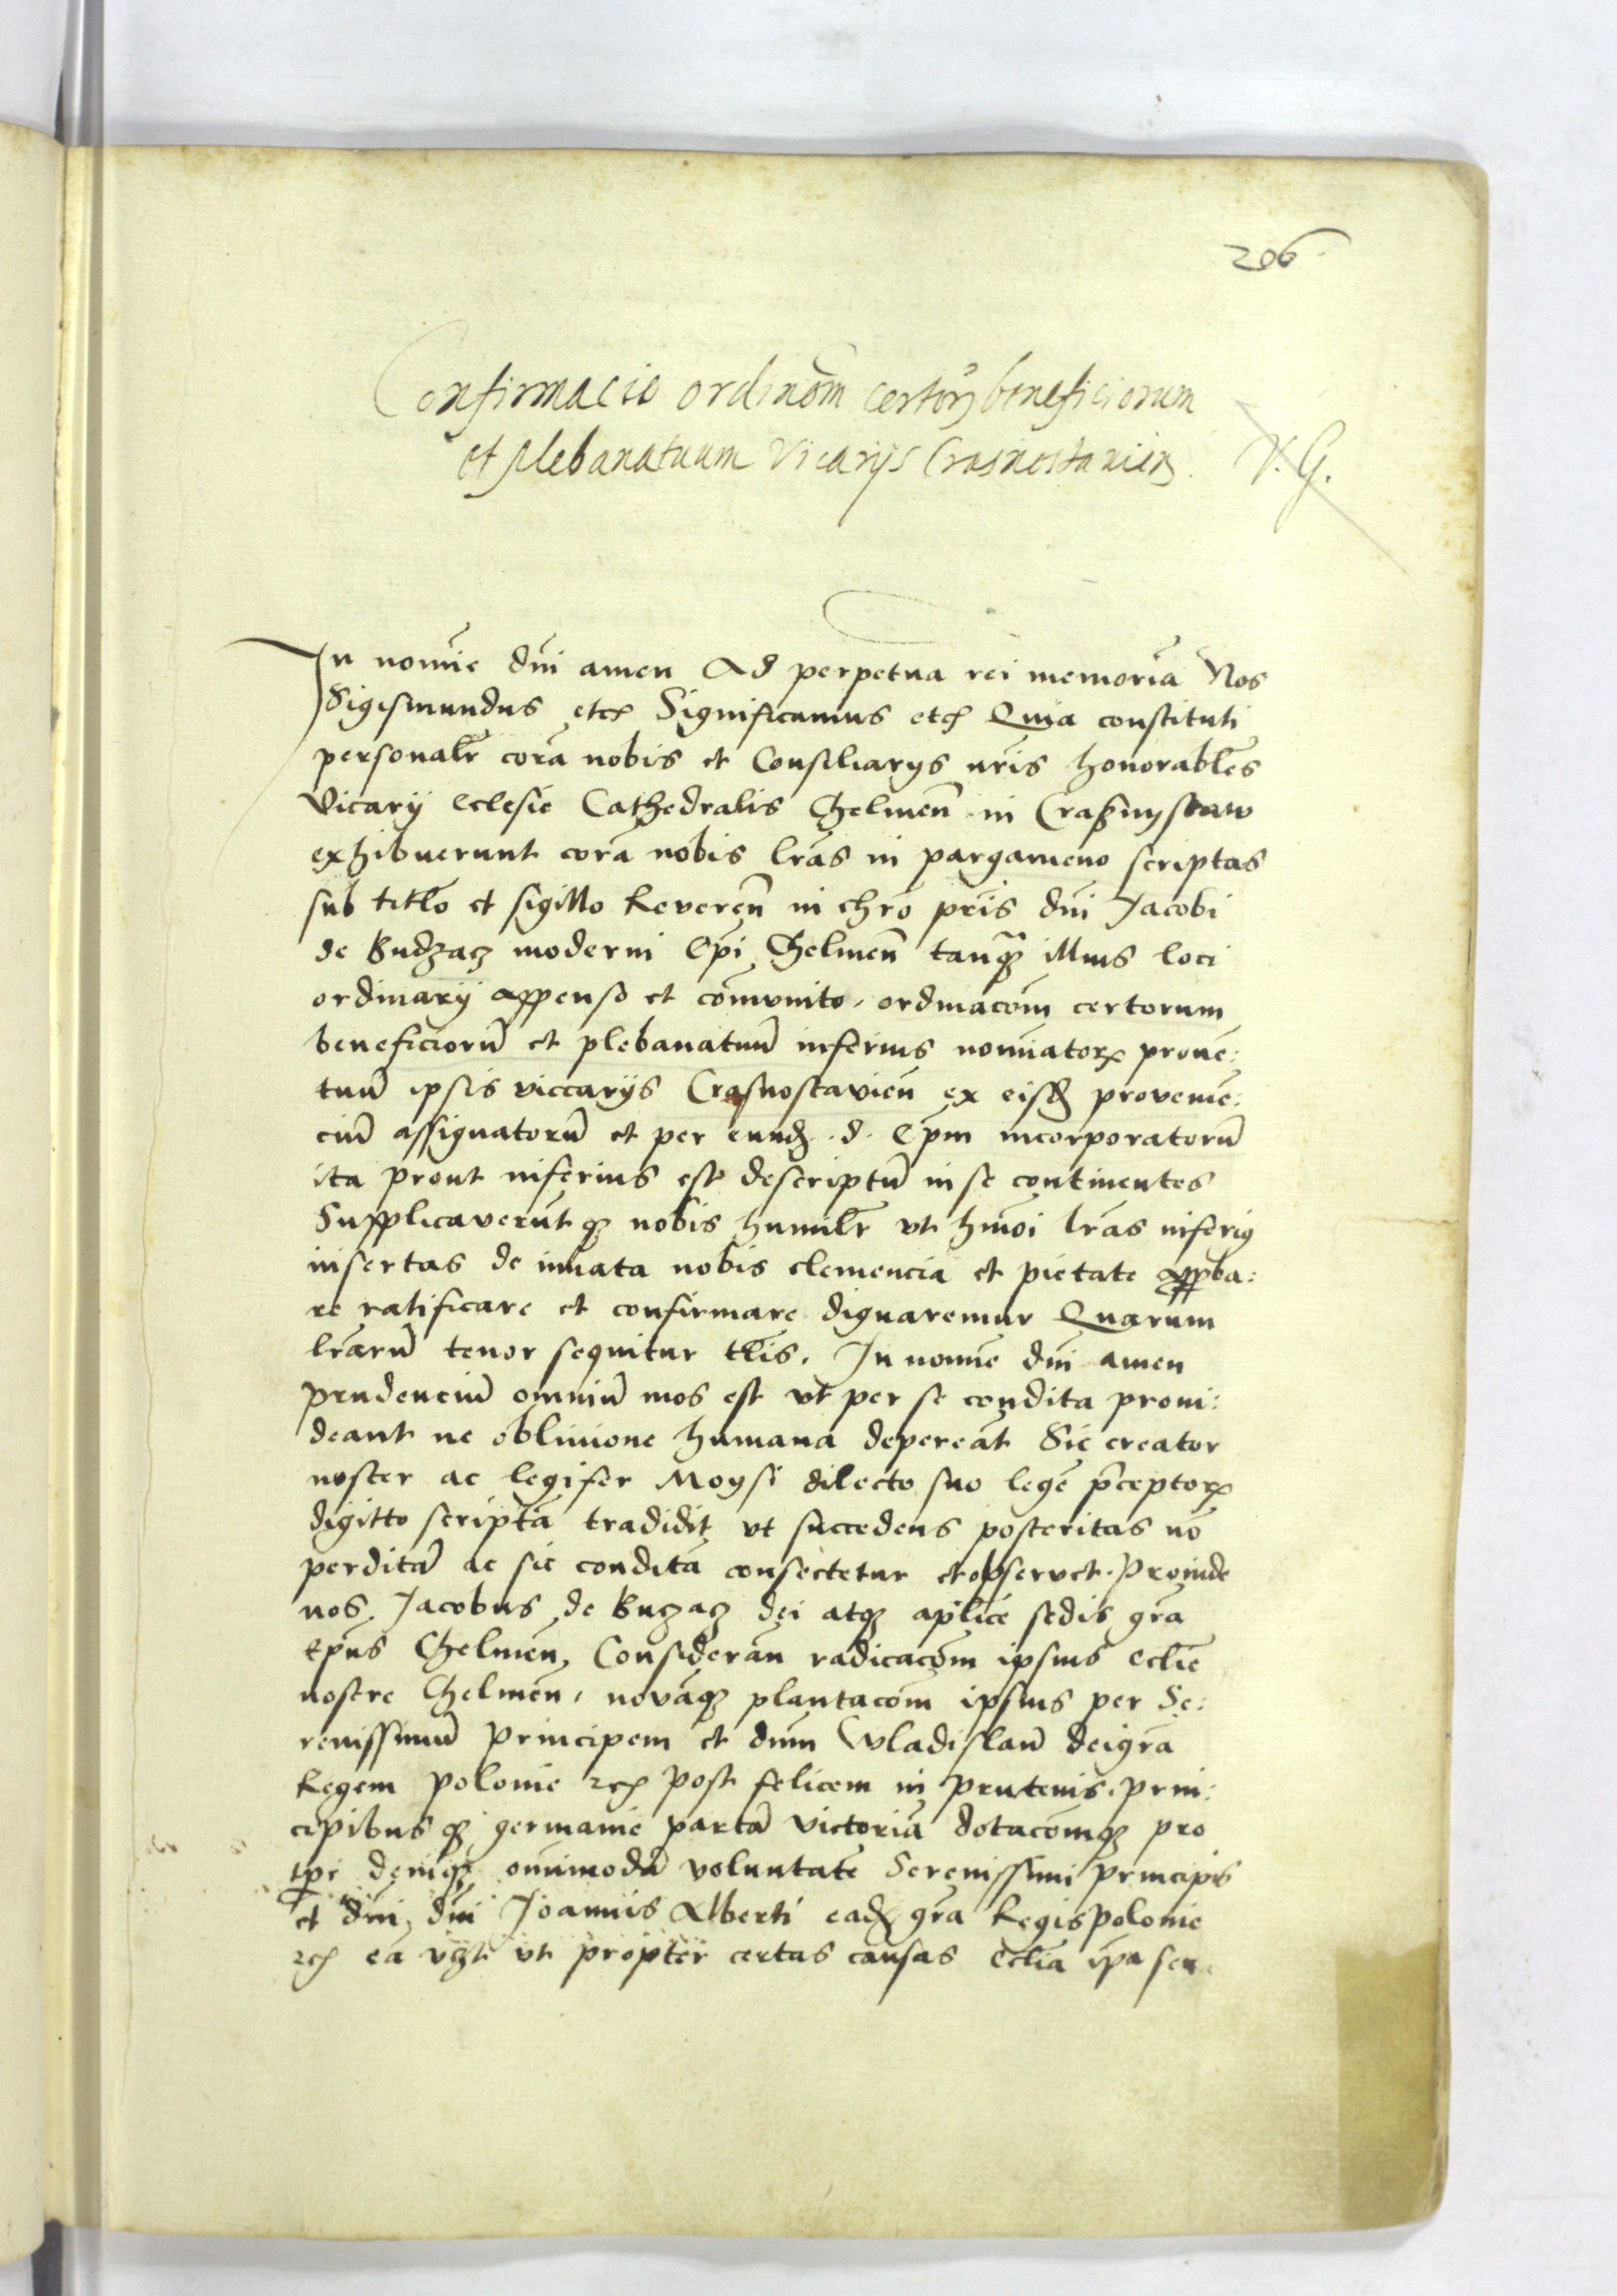 206
Confirmacio ordinom̄ certorꝝ beneficiorum
et plebanatuum Vicarijs Crasnostavien̄.
V. G.
In nomīe dn̄i amen Ad perpetua rei memoriā Nos
Sigismundus etcꝭ Significamus etcꝭ Quia constituti
personalr̄ corā nobis et Consiliarijs nr̄is honorabl̄es
Vicarij Eclesie Cathedralis Chelmen̄ in Craßnystaw
exhibuerunt corā nobis lr̄as in pargameno scriptas
sub titl̄o et sigillo Reveren̄ in chr̄o pr̄is dn̄i Jacobi
de Budzacz moderni Ep̄i Chelmen̄ tanq̄ꝫ illius loci
ordinarij appenso et com̄unito, ordinacom̄ certorum
beneficiorū et plebanatuū inferius nomīatorꝝ prouē:
tuū ipsis viccarijs Crasnostavien̄ ex eisdꝫ provenie:
ciū assignatorū et per eundꝫ .d. Ep̄m incorporatorū
ita prout inferius est descriptū in se continentes
Supplicaverūt qꝫ nobis humilr̄ vt hm̄oi lr̄as inferiꝰ
insertas de innata nobis clemencia et pietate app̄ba:
re ratificare et confirmare dignaremur Quarum
lr̄arū tenor sequitur tl̄is. In nomīe dn̄i amen
prudenciū omniū mos est vt per se condita proui:
deant ne obliuione humana depereāt Sic creator
noster ac legifer Moysi dilecto suo legē p̄ceptorꝝ
digitto scriptā tradidit vt succedens posteritas nō
perditā ac sic conditā consectetur et observet. Proinde
nos Jacobus de Buczacz dei atqꝫ aplic̄e sedis gr̄a
Ep̄us Chelmen̄, Considerān radicacom̄ ipsius ecl̄ie
nostre Chelmen̄, novāqꝫ plantacom̄ ipsius per Se:
renissimū Principem et dn̄m Wladislaū dei gr̄a
Regem polonie ꝛcꝭ post felicem in prutenis, prin:
cipibus qꝫ germanie partā victoriā dotacom̄qꝫ pro
tp̄e deniqꝫ om̄nimodā voluntatē Serenissimi principis
et dn̄i, dn̄i Joannis Alberti eadꝫ gr̄a Regis polonie
ꝛcꝭ eā vꝫt vt propter certas causas Ecl̄ia ip̄a seu